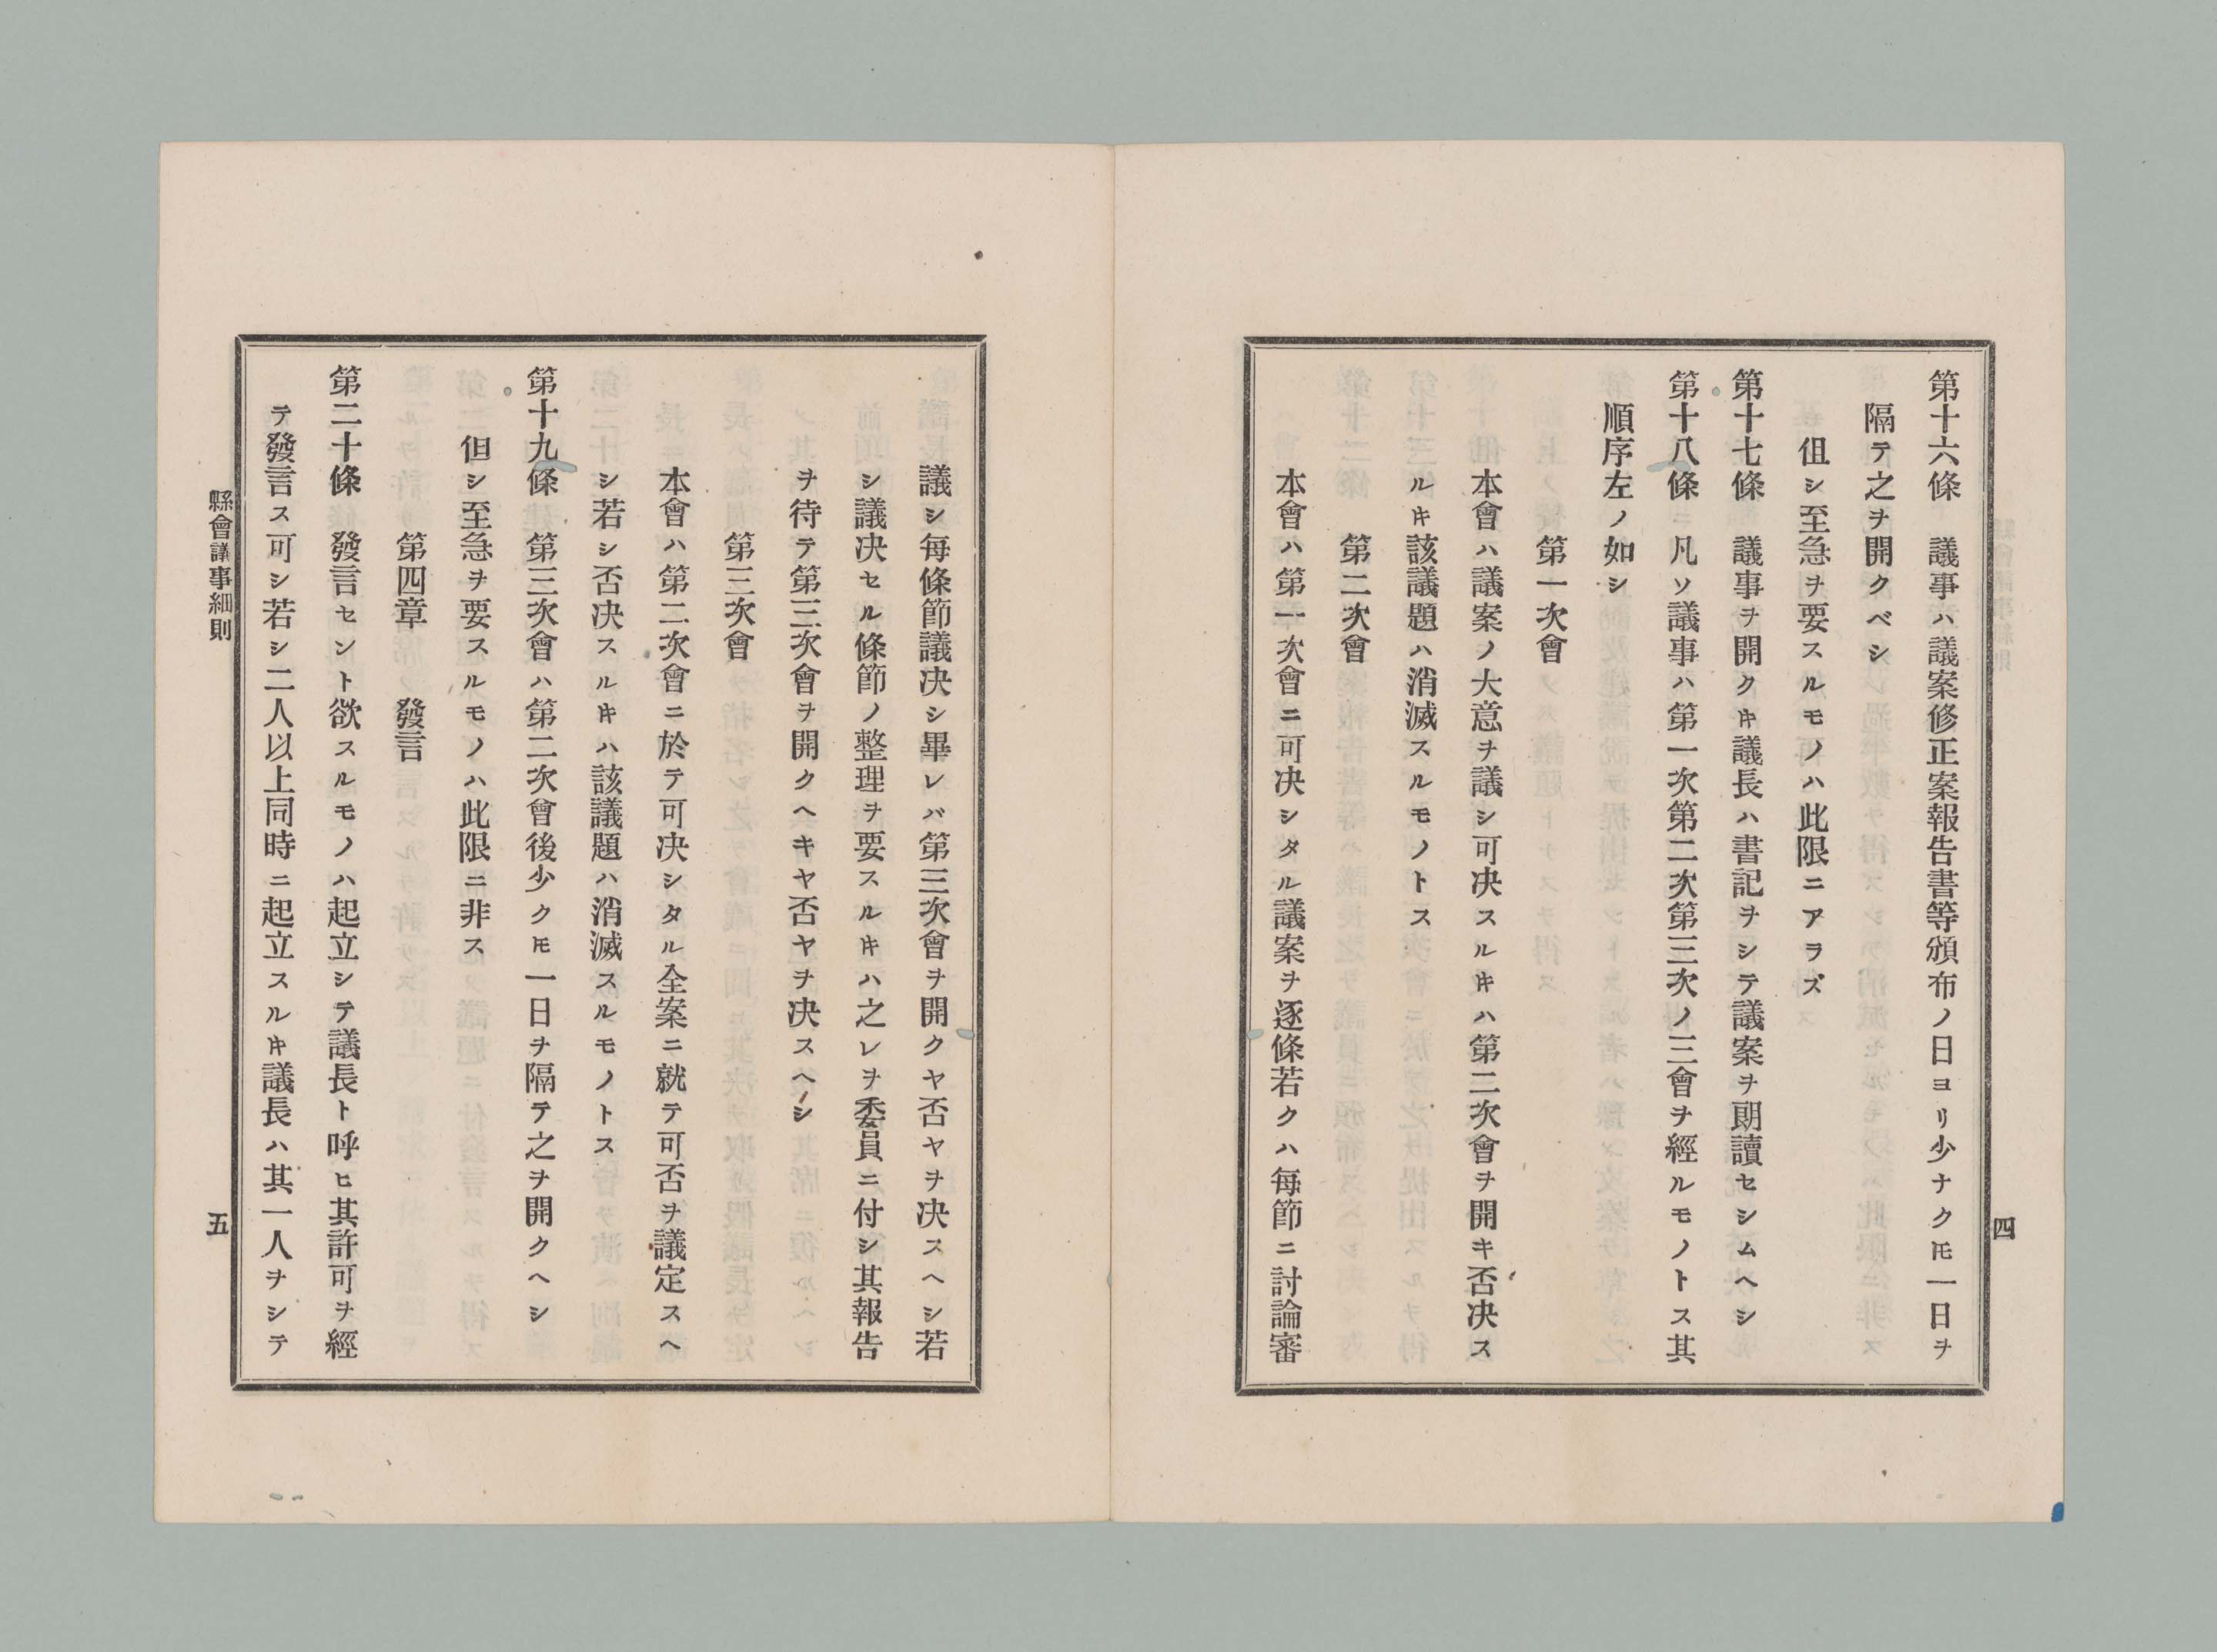 四
第十六條　議事ハ議案修正案報告書等頒布ノ日ヨリ少ナクモ一日ヲ
隔テ之ヲ開クベシ
伹シ至急ヲ要スルモノハ此限ニアラズ
第十七條　議事ヲ開クキ議長ハ書記ヲシテ議案ヲ朗讀セシムヘシ
第十八條　凡ソ議事ハ第一次第二次第三次ノ三會ヲ經ルモノトス其
順序左ノ如シ
第一次會
本會ハ議案ノ大意ヲ議シ可决スルキハ第二次會ヲ開キ否决ス
ルキ該議題ハ消滅スルモノトス
第二次會
本會ハ第一次會ニ可决シタル議案ヲ逐條若クハ毎節ニ討論審
議シ毎條節議决シ畢レバ第三次會ヲ開クヤ否ヤヲ决スヘシ若
シ議决セル條節ノ整理ヲ要スルキハ之レヲ委員ニ付シ其報告
ヲ待テ第三次會ヲ開クヘキヤ否ヤヲ决スヘシ
第三次會
本會ハ第二次會ニ於テ可决シタル全案ニ就テ可否ヲ議定スヘ
シ若シ否决スルキハ該議題ハ消滅スルモノトス
第十九條　第三次會ハ第二次會後少クモ一日ヲ隔テ之ヲ開クヘシ
但シ至急ヲ要スルモノハ此限ニ非ス
第四章　發言
第二十條　發言セント欲スルモノハ起立シテ議長ト呼ヒ其許可ヲ經
テ發言ス可シ若シ二人以上同時ニ起立スルキ議長ハ其一人ヲシテ
縣會議事細則
五